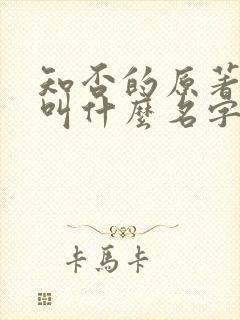 知否的原著
叫什麼名字
卡馬卡